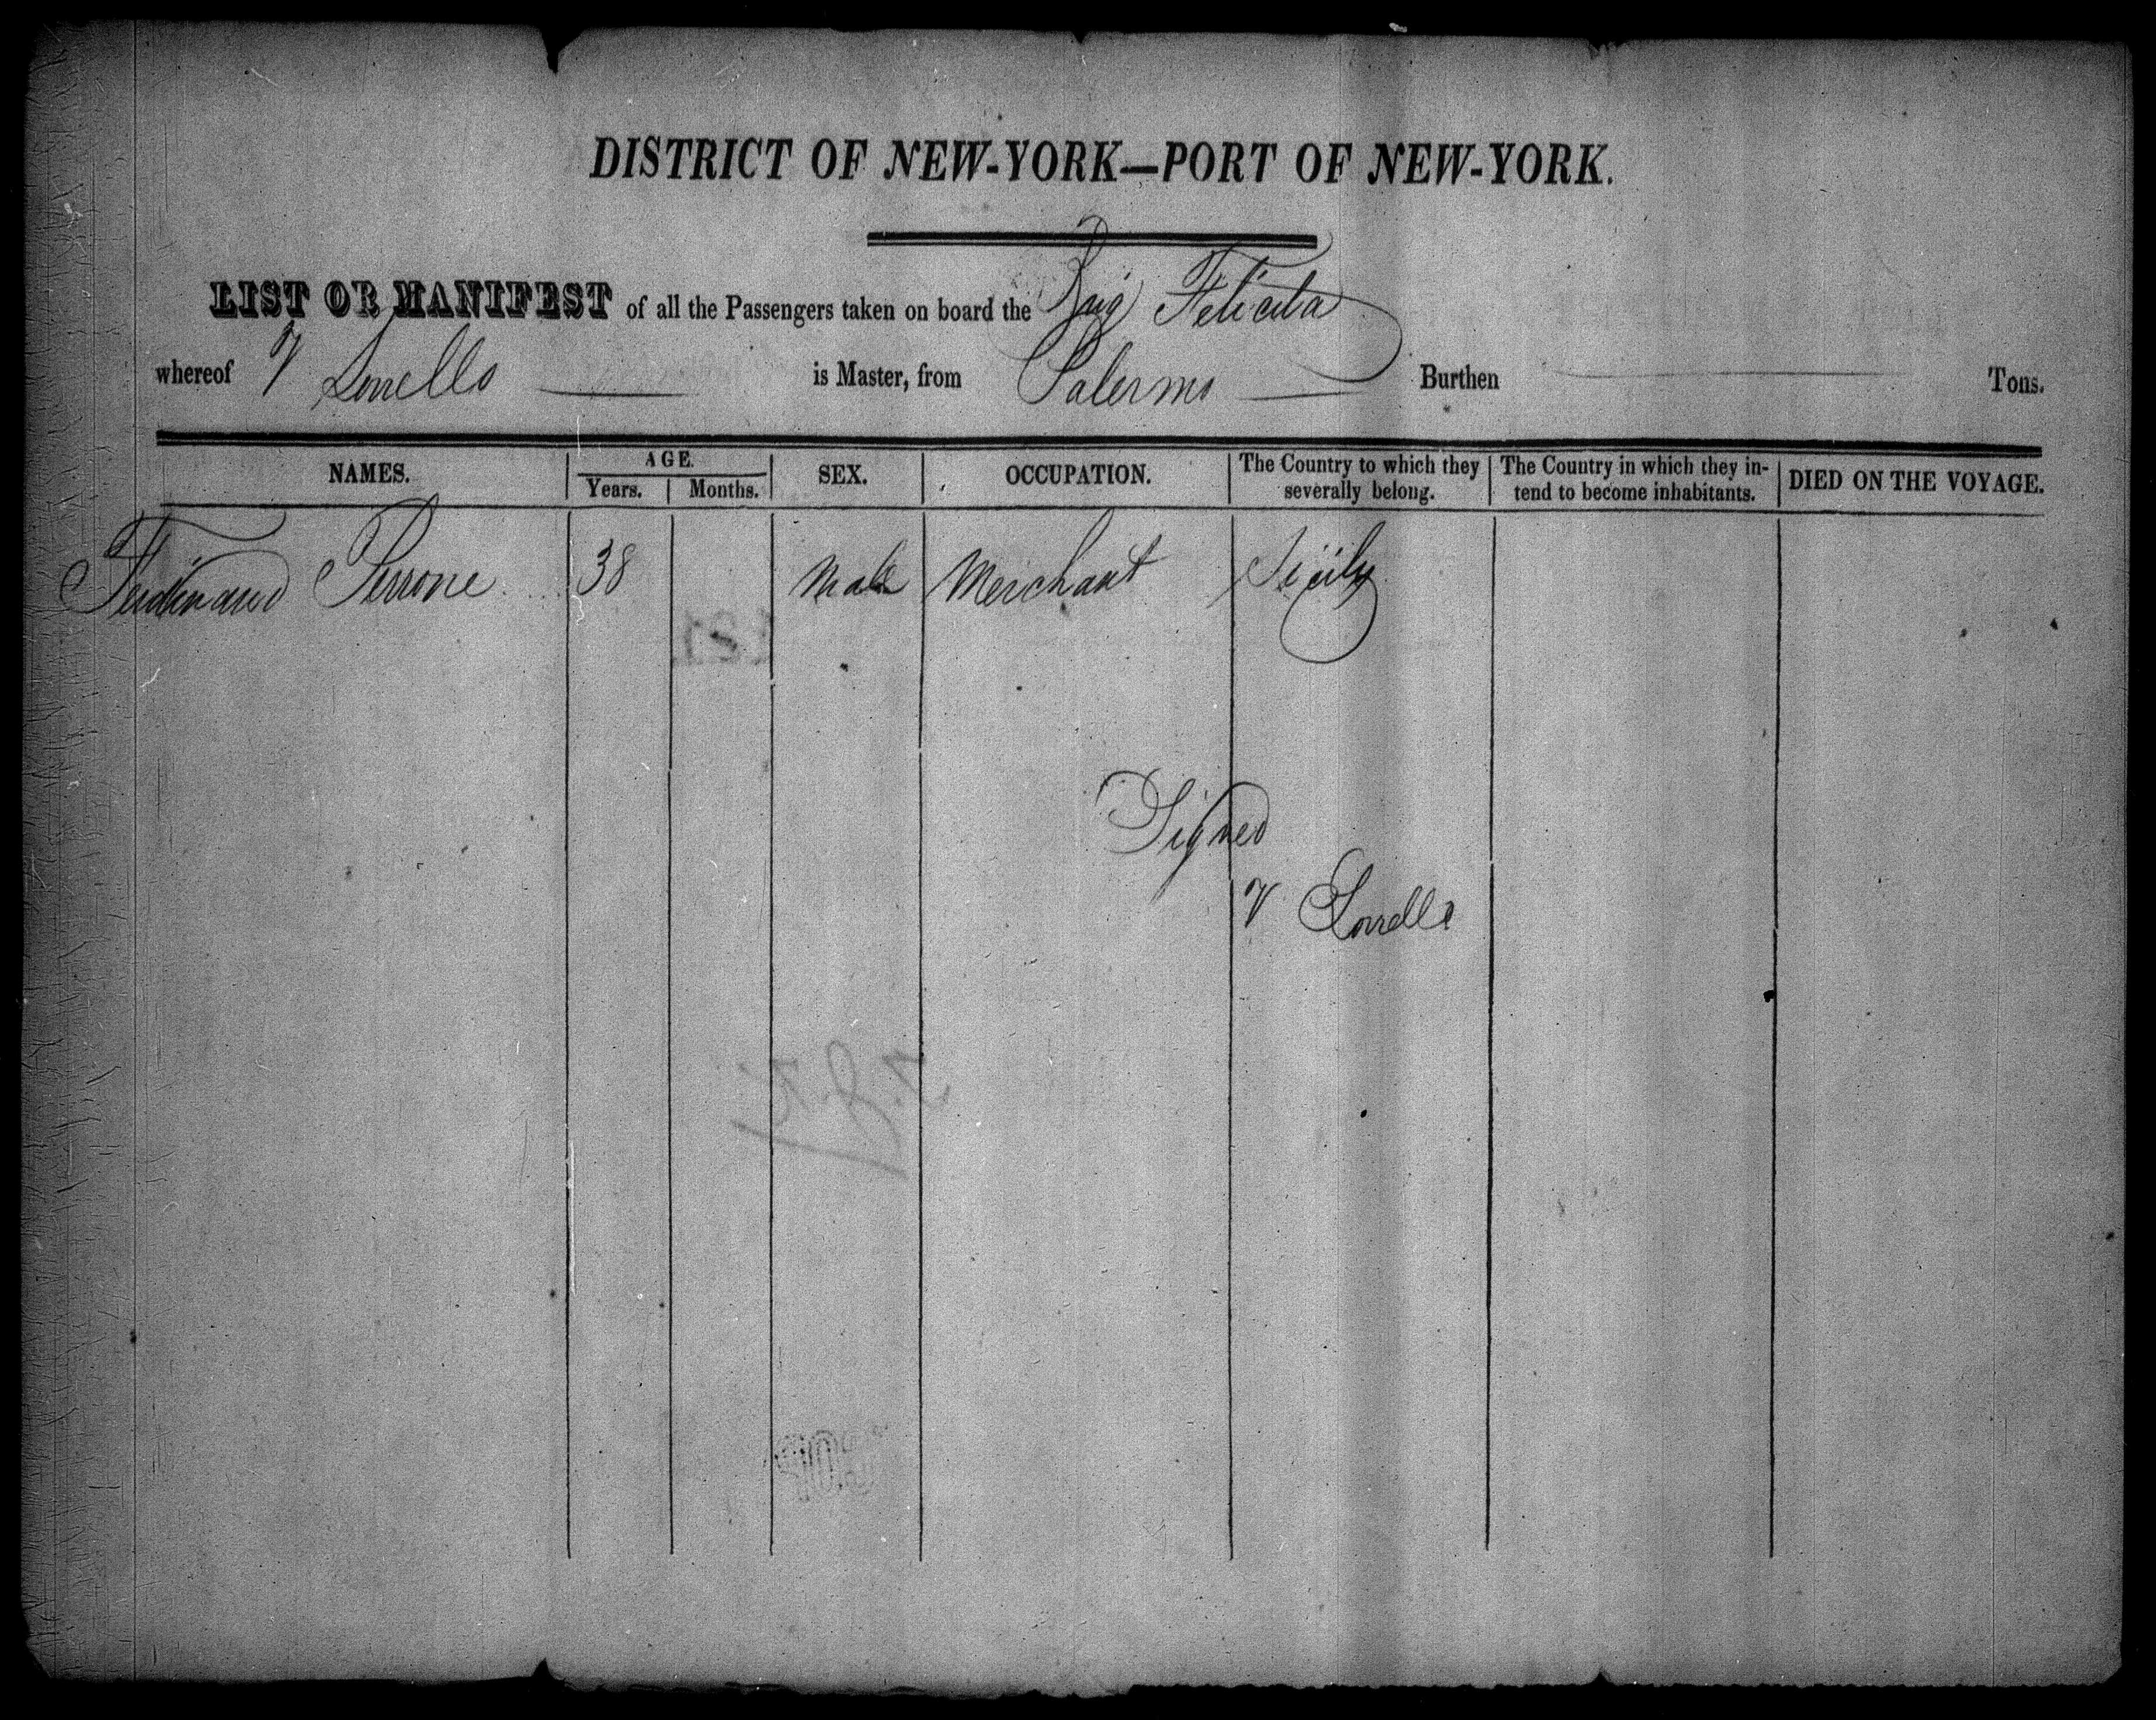 DISTRICT OF NEW-YORK—PORT OF NEW-YORK.
LIST OR MANIFEST of all the Passengers taken on board the Brig Felicita
whereof V Lovello is Master, from Palermo Burthen Tons.
NAMES. AGE. Years. Months. SEX. OCCUPATION. The Country to which they severally belong. The Country in which they intend to become inhabitants. DIED ON THE VOYAGE.
Ferdinand Perrone 38 Male Merchant Sicily
Signed
V